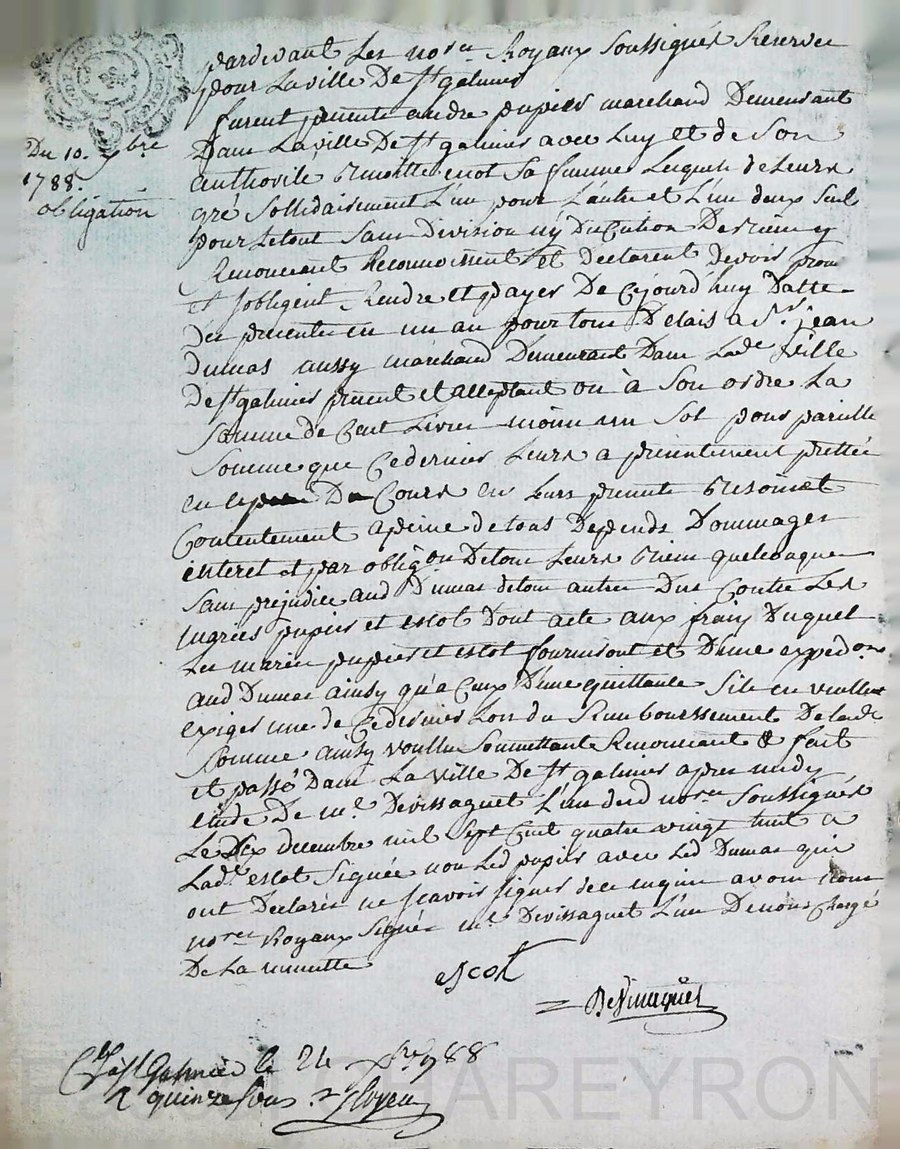 pardevant Les no.res Royaux soussignés Reservés
pour La ville De st galmier
furent presents andre pupier marchand Demeurant
Dans La ville De st galmier avec Luy et de Son
authorité escot Sa femme Lesquels de Leurs
gré Sollidairement L'un pour L'autre et L'un deux Seul
pour Le tout Sans Division ny Discution De
Renoncant Reconnoissent et Declarent Devoir
et sobligent Rendre et payer De cejourd'huy Datte
Des presentes en un an pour tous Delais a Sr jean
Dumas aussy marchand Demeurant Dans Lade ville
De st galmier present et acceptant ou à Son ordre La
Somme de Cent Livres moins un Sol pour pareille
Somme que Ce dernier Leurs a presentement prettée
en Du Cours en Leurs presente
Contentement a peine de tous Depends Dommages
interet et par oblig.on De tous Leurs Biens quelconques
Sans prejudice aud Dumas de tous autres Dus Contre Les
mariés pupier et escot Dont acte aux frais Duquel
Les mariés pupier et escot fourniront et D'une exped.on
aud Dumas ainsy qu'a Ceux D'une quittance Sils en veullent
exiger une de Ce dernier Lors du Remboursement De lade
Somme ainsy voullu Soumettants Renoncant & fait
et passé Dans La ville De st galmier apres midy
etude De me. Devissaguet L'un desd no.res Soussignés
Le Dix decembre mil Sept Cent quatre vingt huit a
Lade. escot Signée non Led pupier avec Led Dumas qui
ont Declarés ne sçavoir signer de ce enquis avons nous
no.res Royaux Signé me. Devissaguet L'un De nous Chargé
De La minutte
escot
Devissaguet
Du 10. xbre
1788.
obligation
Clé a St Galmier le 24 xbre 1788
R quinze sous
CHAREYRON